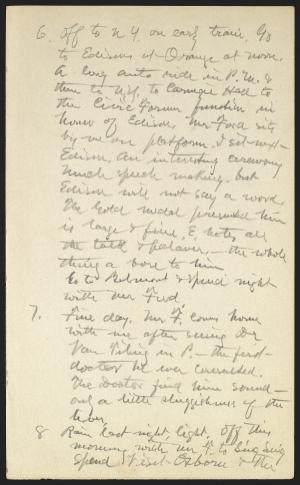 6. Off to N.Y. on early train. Go
to Edisons at Orange at noon.
A long auto ride in P.M. &
then to N.Y. to Carnegie Hall to
the Civic Forum function in
honor of Edison. Mr Ford sits
by me on platform. I sit next
Edison. An interesting ceremony
much speech making, but
Edison will not say a word.
The Gold medal presented him
is large & fine. E. hates all
the talk & palaver, — the whole
thing a bore to him
Go to Belmont & spend night
with Mr Ford.
7. Fine day. Mr F. comes home
with me after seeing Dr
Van in P. — the first
doctor he ever consulted.
The Doctor finds him sound —
only a little sluggishness of the
liver.
8 Rain last night, light. Off this
morning with Mr F. to Sing Sing
Spend Visit Osborn & the